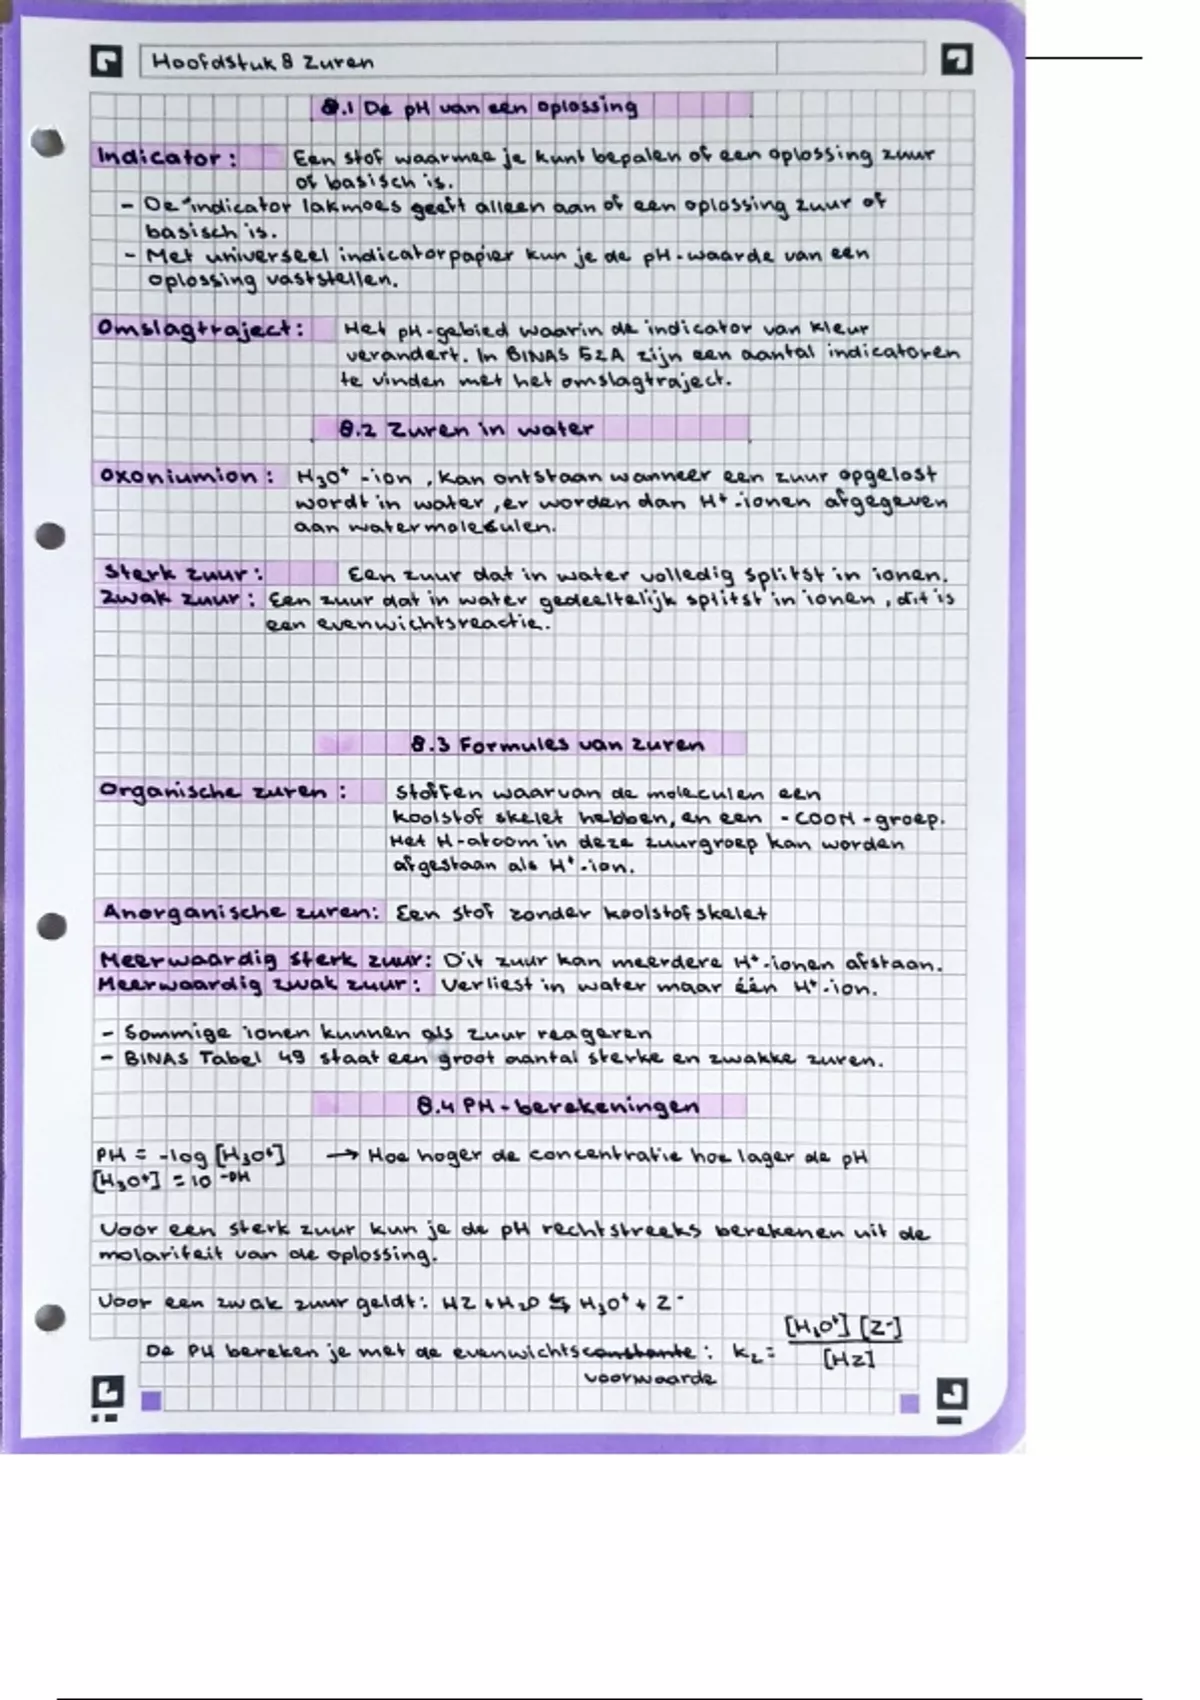 Hoofdstuk 8 Zuren
8.1 De pH van een oplossing
Indicator: Een stof waarmee je kunt bepalen of een oplossing zuur
of basisch is.
- De indicator lakmoes geeft alleen aan of een oplossing zuur of
basisch is.
- Met universeel indicatorpapier kun je de pH-waarde van een
oplossing vaststellen.
Omslagtraject: Het pH-gebied waarin de indicator van kleur
verandert. In BINAS 52A zijn een aantal indicatoren
te vinden met het omslagtraject.
8.2 Zuren in water
Oxoniumion: H₃O⁺ -ion, kan ontstaan wanneer een zuur opgelost
wordt in water, er worden dan H⁺-ionen afgegeven
aan watermoleculen.
Sterk zuur: Een zuur dat in water volledig splitst in ionen.
Zwak zuur: Een zuur dat in water gedeeltelijk splitst in ionen, dit is
een evenwichtsreactie.
8.3 Formules van zuren
Organische zuren: Stoffen waarvan de moleculen een
koolstof skelet hebben, en een -COOH-groep.
Het H-atoom in deze zuurgroep kan worden
afgestaan als H⁺-ion.
Anorganische zuren: Een stof zonder koolstofskelet
Meerwaardig sterk zuur: Dit zuur kan meerdere H⁺-ionen afstaan.
Meerwaardig zwak zuur: Verliest in water maar één H⁺-ion.
- Sommige ionen kunnen als zuur reageren
- BINAS Tabel 49 staat een groot aantal sterke en zwakke zuren.
8.4 PH-berekeningen
PH = -log [H₃O⁺] → Hoe hoger de concentratie hoe lager de pH
[H₃O⁺] = 10⁻ᵖᴴ
Voor een sterk zuur kun je de pH rechtstreeks berekenen uit de
molariteit van de oplossing.
Voor een zwak zuur geldt: HZ + H₂O ⇆ H₃O⁺ + Z⁻
De PH bereken je met de evenwichtsconstante: Kz = [H₃O⁺] [Z⁻] / [HZ]
voorwaarde